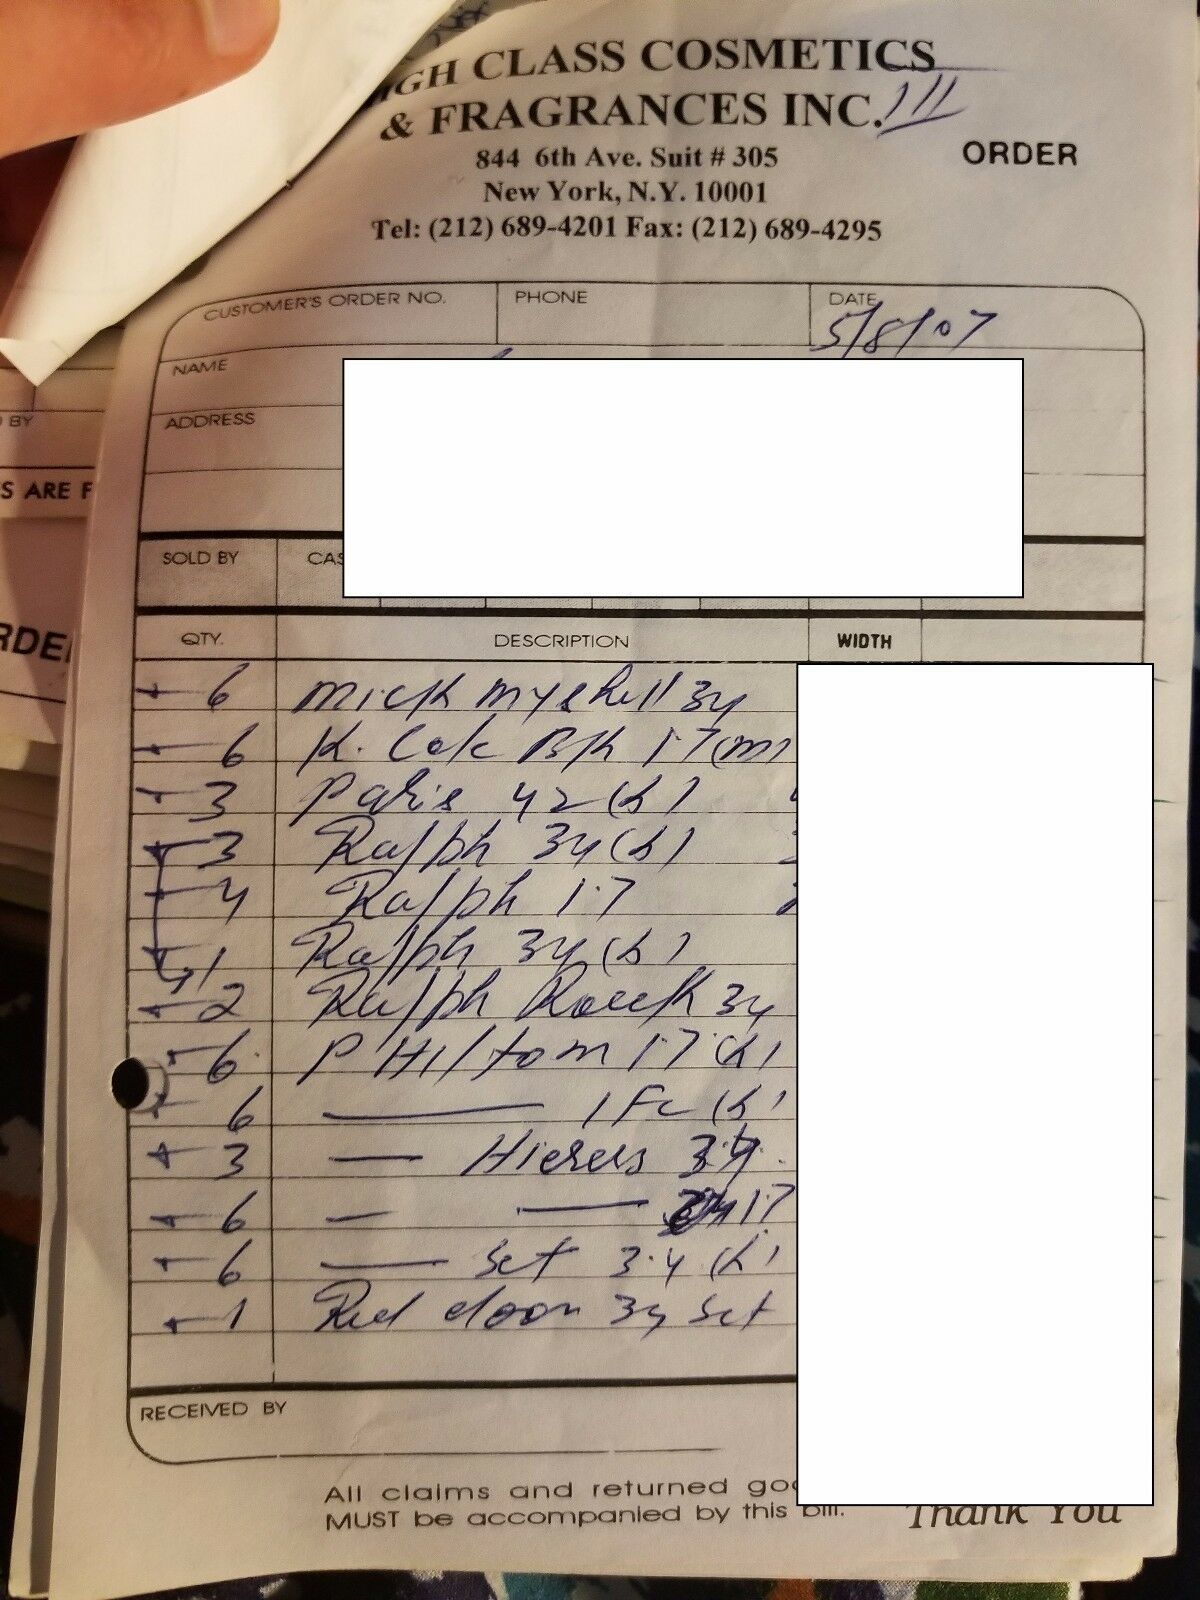 IGH CLASS COSMETICS
& FRAGRANCES INC. III
844 6th Ave. Suit # 305
ORDER
New York, N.Y. 10001
Tel: (212) 689-4201 Fax: (212) 689-4295
CUSTOMER'S ORDER NO. PHONE DATE
5/8/07
NAME
ADDRESS
D BY
S ARE F
SOLD BY CAS
RDE
QTY. DESCRIPTION WIDTH
6 mick myshell 34
6 K. Cole Blk 1.7 (m)
3 Paris 42 (L)
3 Ralph 34 (L)
4 Ralph 1.7
1 Ralph 34 (L)
2 Ralph 34
6 P Hiltom 1.7 (L)
6 — 1 Fc (L)
3 — Hieress 3.4
6 — — 1.7
6 — Set 3.4 (L)
1 Red door 34 Set
RECEIVED BY
All claims and returned goo
MUST be accompanied by this bill.
Thank You